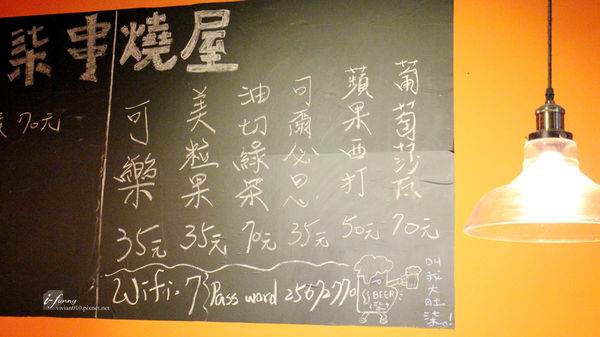 柒串燒屋
70元
葡萄莎瓦 70元
蘋果西打 50元
可爾必思 35元
油切綠茶 70元
美粒果 35元
可樂 35元
Wifi:7 Password
BEER
叫我大肚柒!
i-funny
vivian010.pixnet.net